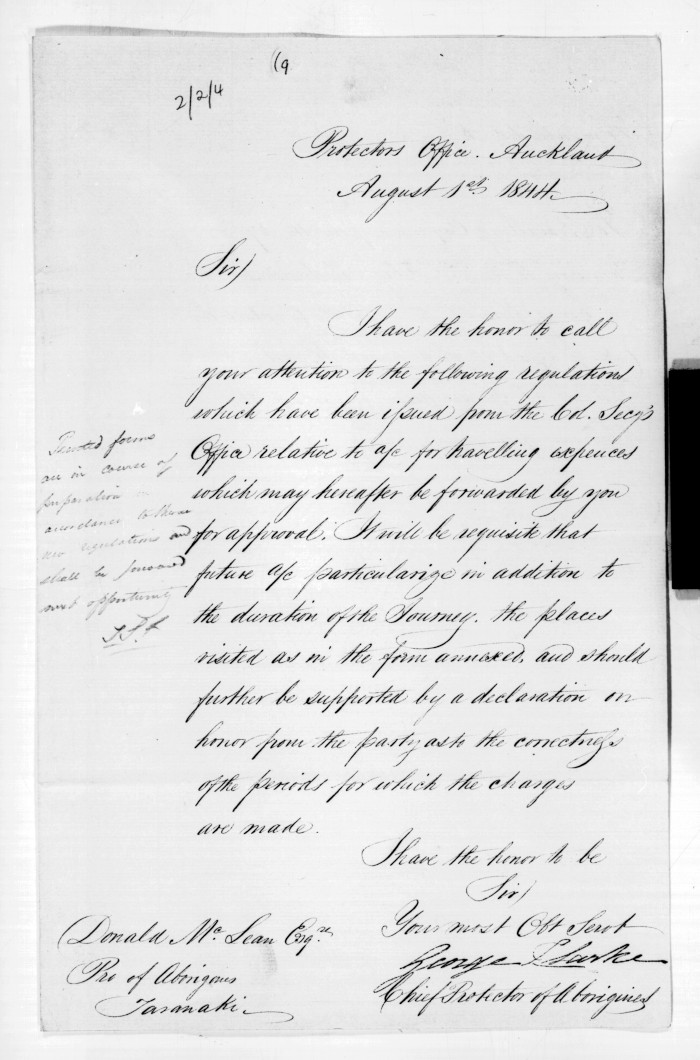 (9
2/2/4
Protectors Office. Auckland
August 1st 1844.
Sir)
I have the honor to call
your attention to the following regulations
which have been issued from the Col. Secy's
Office relative to a/c for travelling expences
which may hereafter be forwarded by you
for approval. It will be requisite that
future a/c particularize in addition to
the duration of the Journey. the places
visited as in the form annexed, and should
further be supported by a declaration on
honor from the party as to the correctness
of the periods for which the charges
are made.
Printed forms
are in course of
preparation in
accordance to these
new regulations and
shall be forward
next opportunity
I have the honor to be
Sir)
Your most Obt Servt
George Clarke
Chief Protector of Aborigines
Donald Mc Lean Esqre
Pro of Aborigines
Taranaki